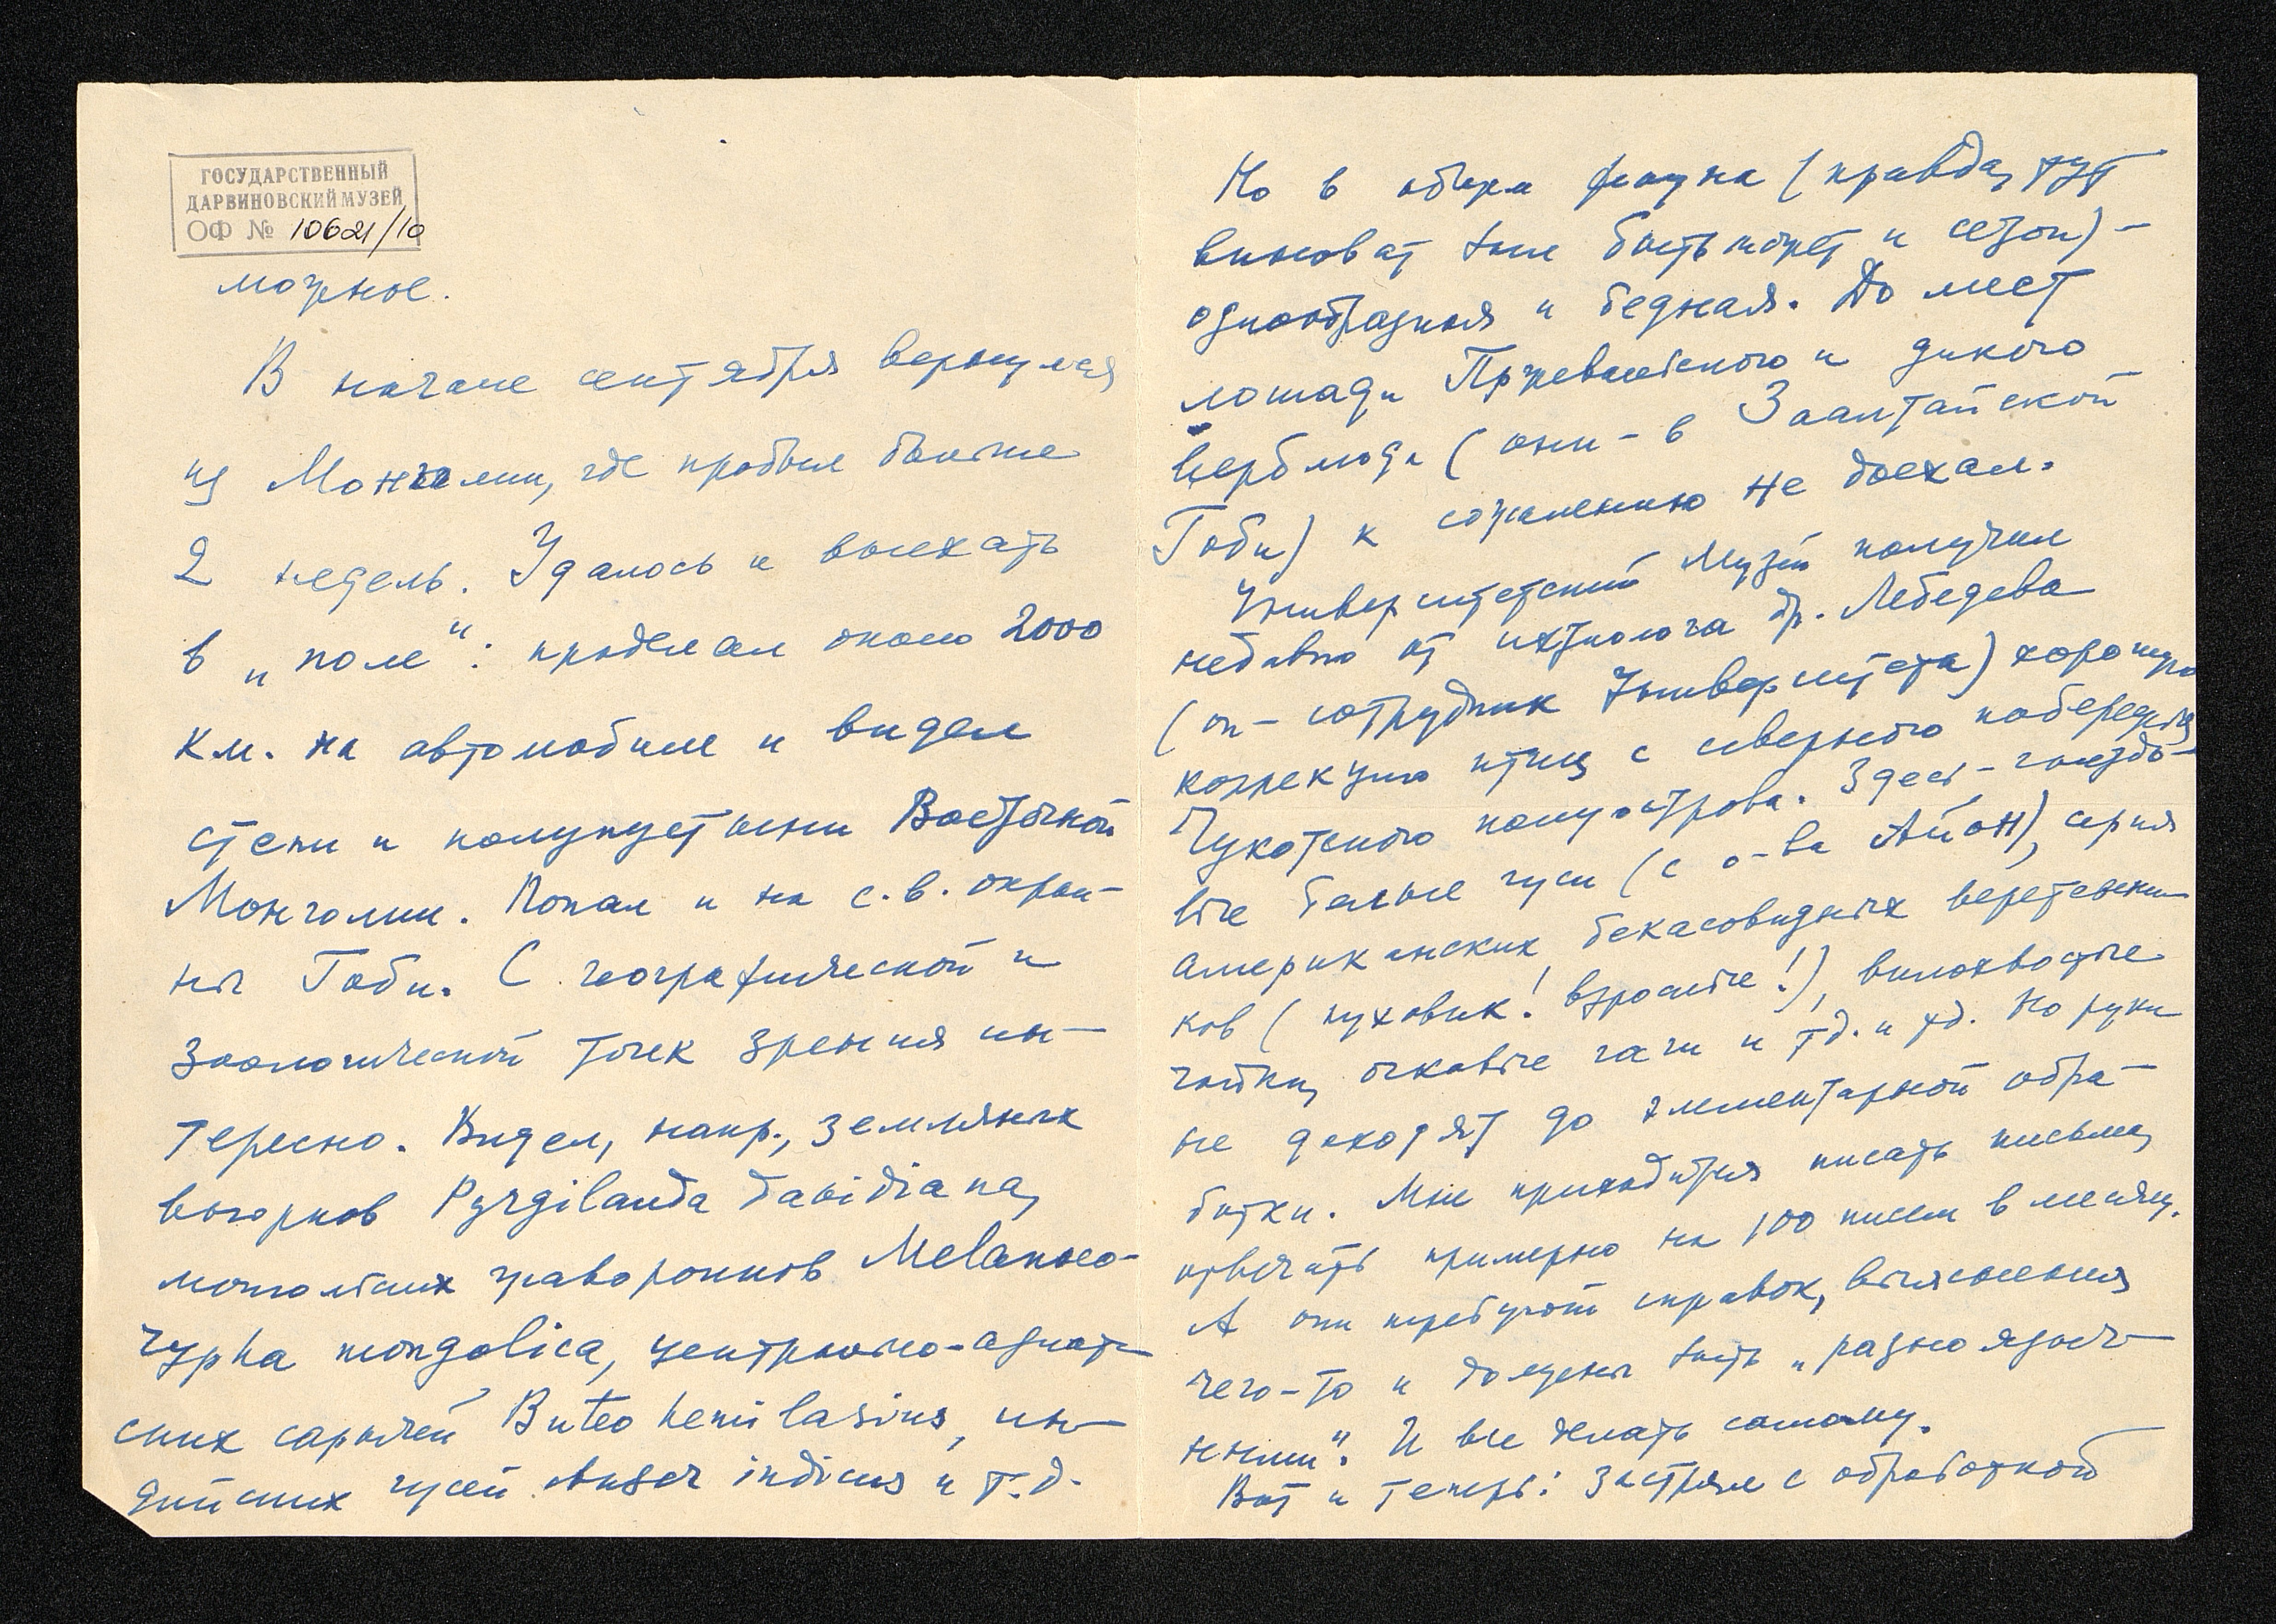 ГОСУДАРСТВЕННЫЙ
ДАРВИНОВСКИЙ МУЗЕЙ
ОФ № 10621/10
можное.
В начале сентября вернулся
из Монголии, где пробыл больше
2 недель. Удалось и выехать
в „поле“: проделал около 2000
км. на автомобиле и видел
степи и полупустыни Восточной
Монголии. Попал и на с.в. окраи-
ны Гоби. С географической и
зоологической точек зрения ин-
тересно. Видел, напр., земляных
вьюрков Pyrgilauda davidiana,
монгольских жаворонков Melanoco-
rypha mongolica, центрально-азиат-
ских сарычей Buteo hemilasius, ин-
дийских гусей Anser indicus и т.д.
Но в общем фауна (правда, тут
виноват был быть может и сезон) -
однообразная и бедная. До мест
лошади Пржевальского и дикого
верблюда (они - в Заалтайской
Гоби) к сожалению не доехал.
Университетский Музей получил
недавно от ихтиолога др. Лебедева
(он - сотрудник Университета) хорошую
коллекцию птиц с северного побережья
Чукотского полуострова. Здесь - гнездо-
вые белые гуси (с о-ва Айон), серия
американских бекасовидных веретенни-
ков (пуховик! взрослые!), вилохвостые
чайки, очковые гаги и т.д. и т.д. Но руки
не доходят до элементарной обра-
ботки. Мне приходится писать письма,
отвечать примерно на 100 писем в месяц.
А они требуют справок, выяснения
чего-то и должны быть „разноязыч-
ными“. И все делать самому.
Вот и теперь: застрял с обработкой